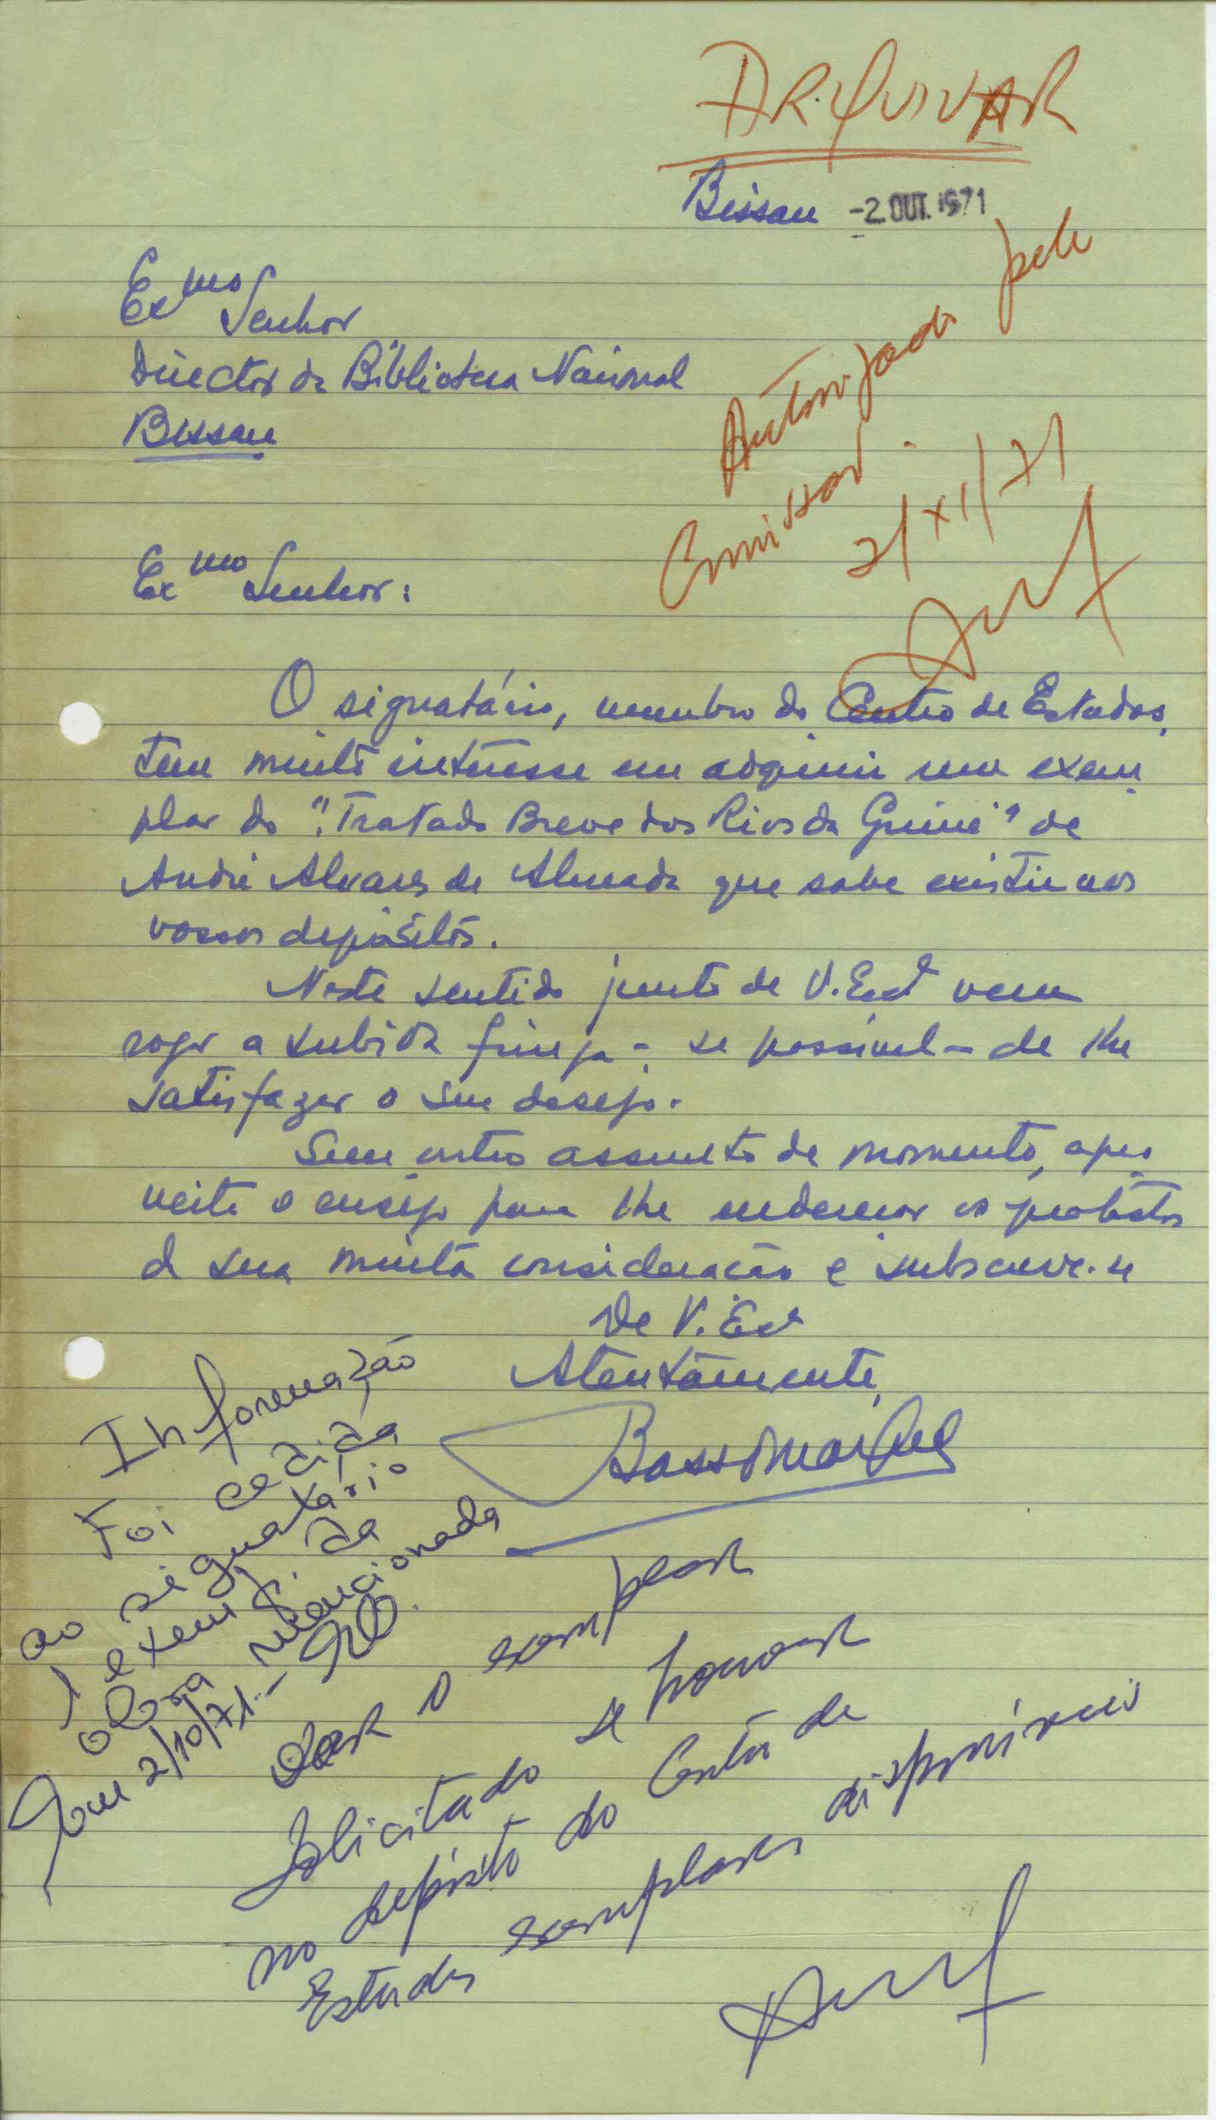 ARQUIVAR
Bissau -2 OUT. 1971
Autorizado pela
Comissão.
2/XI/71
Exmo Senhor
Director da Biblioteca Nacional
Bissau
Exmo Senhor:
O signatário, membro do Centro de Estudos,
tem muito interesse em adquirir um exem
plar do "Tratado Breve dos Rios da Guiné" de
André Alvares de Almada que sabe existir nos
vossos depósitos.
Neste sentido junto de V. Exª vem
rogar a subida fineza - se possível - de lhe
satisfazer o seu desejo.
Sem outro assunto de momento, apro
veita o ensejo para lhe endereçar os protestos
da sua muita consideração e subscreve-se
De V. Exª
Atentamente,
Informação
Foi cedida
ao signatário
1 exempl. da
obra mencionada
Em 2/10/71.-
Dar o exemplar
solicitado se houver
no depósito do Centro de
Estudos exemplares disponíveis